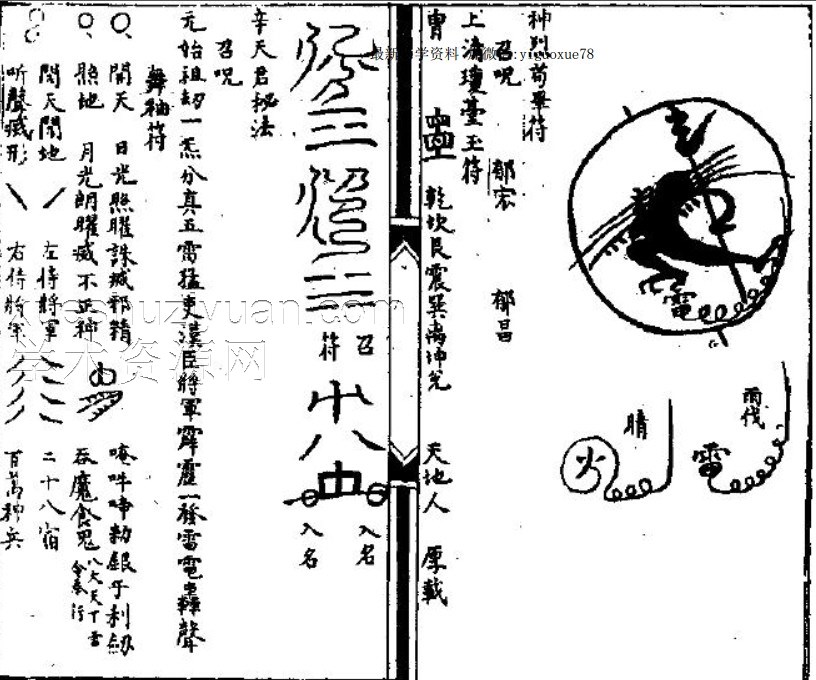 神别苟畢符
召呪
郁宏 郁昌
上清瓊臺玉符
乾坎艮震巽离坤兌 天地人 原載
電
雨伐
雷
晴
火
召符
入名
入名
辛天君秘法
召呪
元始祖劫一炁分真五雷猛吏漢臣將軍霹靂一發雷電轟聲
舞袖符
開天 日光照曜誅滅邪精 唵吽啼勅銀牙利劒
照地 月光朗曜滅不正神 吞魔食鬼
開天開地 左侍將軍 二十八宿
听聲滅形 右侍將軍 百萬神兵
最新 学资料 yiguoxue78
学术资源网